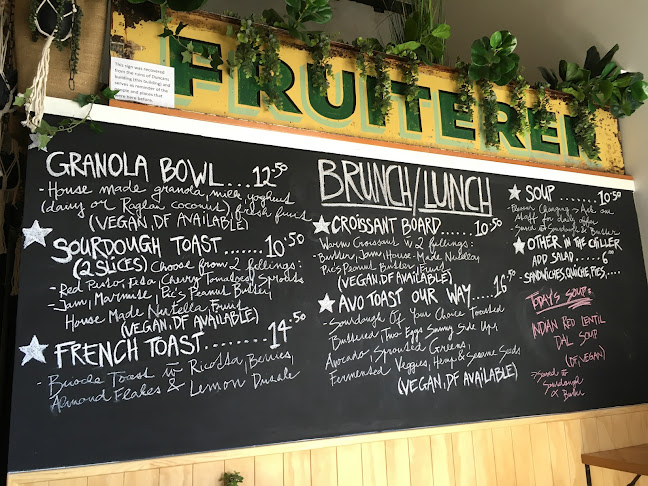 This sign was recovered
from the ruins of Duncan's
building (this building) and
serves as reminder of the
people and places that
were here before.
FRUITERER
GRANOLA BOWL....12.50
- House made granola, milk, yoghurt
(dairy or Raglan coconut), fresh fruit
(VEGAN, DF AVAILABLE)
SOURDOUGH TOAST.......10.50
(2 SLICES) Choose from 2 fillings:
- Red Pesto, Feta, Cherry Tomatoes, Sprouts
- Jam, Marmite, Pic's Peanut Butter,
House Made Nutella, Fruit
(VEGAN, DF AVAILABLE)
FRENCH TOAST........14.50
- Brioche Toast w Ricotta, Berries,
Almond Flakes & Lemon
BRUNCH/LUNCH
CROISSANT BOARD.....10.50
Warm Croissant w 2 fillings:
- Butter, Jam, House-Made Nutella,
Pic's Peanut Butter, Fruit
(VEGAN, DF AVAILABLE)
AVO TOAST OUR WAY.....16.50
- Sourdough Of Your Choice Toasted
Buttered, Two Eggs Sunny Side Up,
Avocado, Sprouted Greens,
Fermented Veggies, Hemp & Sesame Seeds
(VEGAN, DF AVAILABLE)
SOUP.......10.50
- Changing - Ask our
staff for daily
- Sourdough & Butter
OTHER IN THE CHILLER
ADD SALAD......6.00
SANDWICHES, QUICHE, PIES,....
TODAY'S SOUP:
INDIAN RED LENTIL
DAL SOUP
(DF, VEGAN)
Served w
Sourdough
& Butter